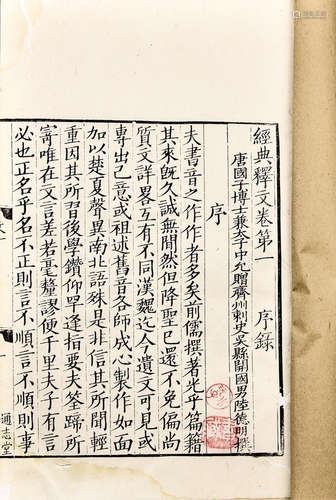 經典釋文卷第一　序錄
唐國子博士兼太子中允贈齊州刺史吳縣開國男陸德明撰
序
夫書音之作作者多矣前儒撰著光乎篇籍
其來既久誠無閒然但降聖已還不免偏尚
質文詳略互有不同漢魏迄今遺文可見或
專出己意或祖述舊音各師成心製作如面
加以楚夏聲異南北語殊是非信其所聞輕
重因其所習後學鑽仰罕逢指要夫筌蹄所
寄唯在文言差若毫釐謬便千里夫子有言
必也正名乎名不正則言不順言不順則事
通志堂